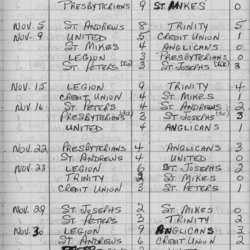 PRESBYTERIANS 9 ST. MIKES 0
NOV. 5 ST. ANDREWS 8 TRINITY 5
NOV. 9 UNITED 5 CREDIT UNION 1
ST. MIKES 4 ANGLICANS 0
LEGION 3 PRESBYTERIANS 0
ST. PETERS (tie) 3 ST. JOSEPHS (tie) 3
NOV. 15 LEGION 9 TRINITY 4
CREDIT UNION 4 ST. MIKES 1
NOV. 16 ST. PETERS 4 ST. ANDREWS 2
PRESBYTERIANS (tie) 3 ST. JOSEPHS (tie) 3
UNITED 4 ANGLICANS 1
NOV. 22 PRESBYTERIANS 4 ANGLICANS 3
ST. ANDREWS 4 UNITED 0
NOV. 23 LEGION 6 ST. JOSEPHS 2
TRINITY 2 ST. MIKES 0
CREDIT UNION 3 ST. PETERS
NOV. 29 ST. JOSEPHS 2 ST. MIKES 0
ST. PETERS 3 TRINITY 1
NOV. 30 LEGION 9 ANGLICANS
ST. ANDREWS 6 CREDIT UNION